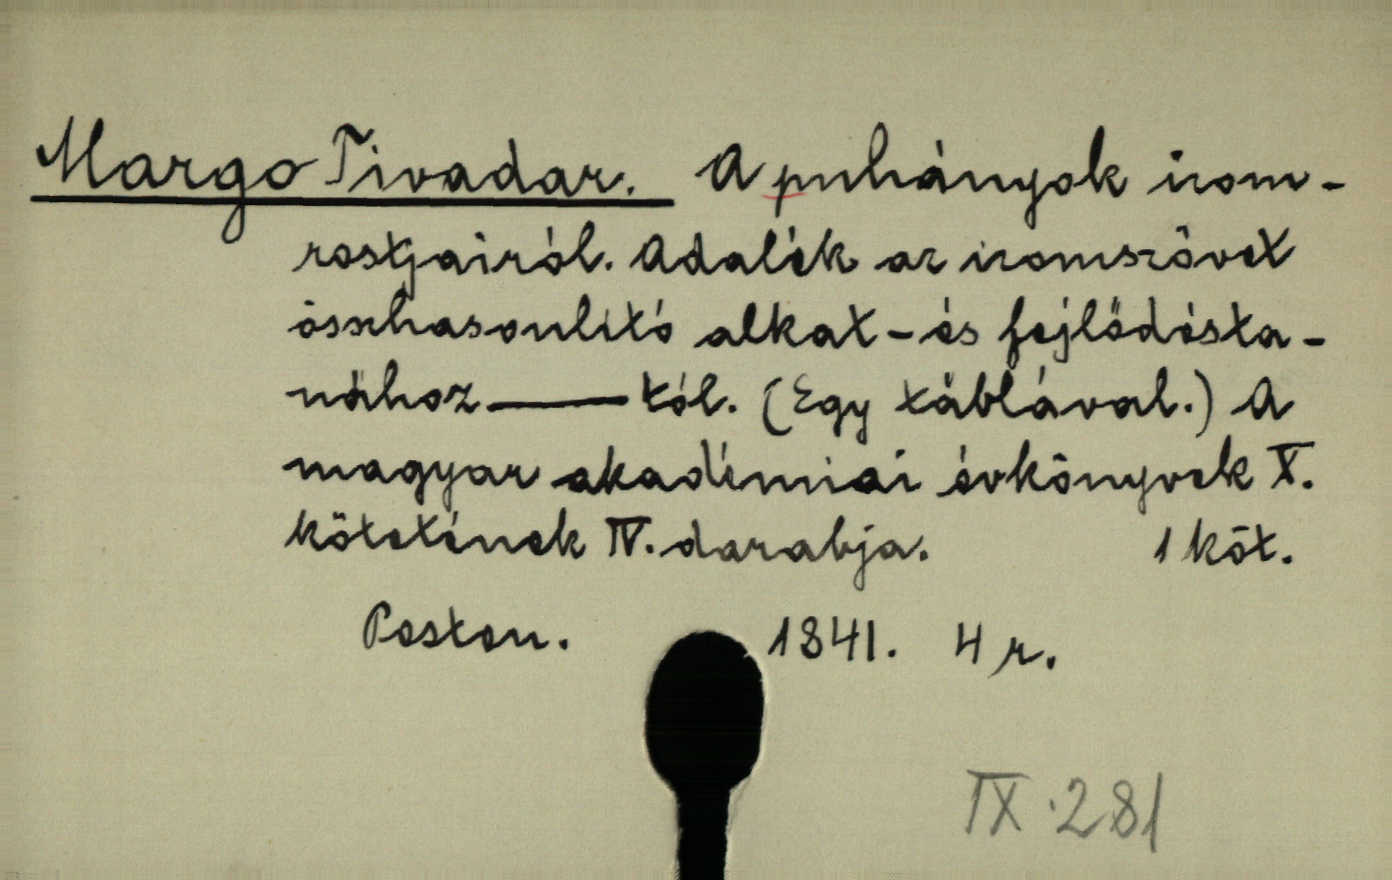 Margo Tivadar. A puhányok izom-
rostjairól. Adalék az izomszövet
összhasonlító alkat-és fejlődésta-
nához——tól. (Egy táblával.) A
magyar akadémiai évkönyvek X.
kötetének IV. darabja. 1 köt.
Pesten. 1841. 4 r.
IX.281